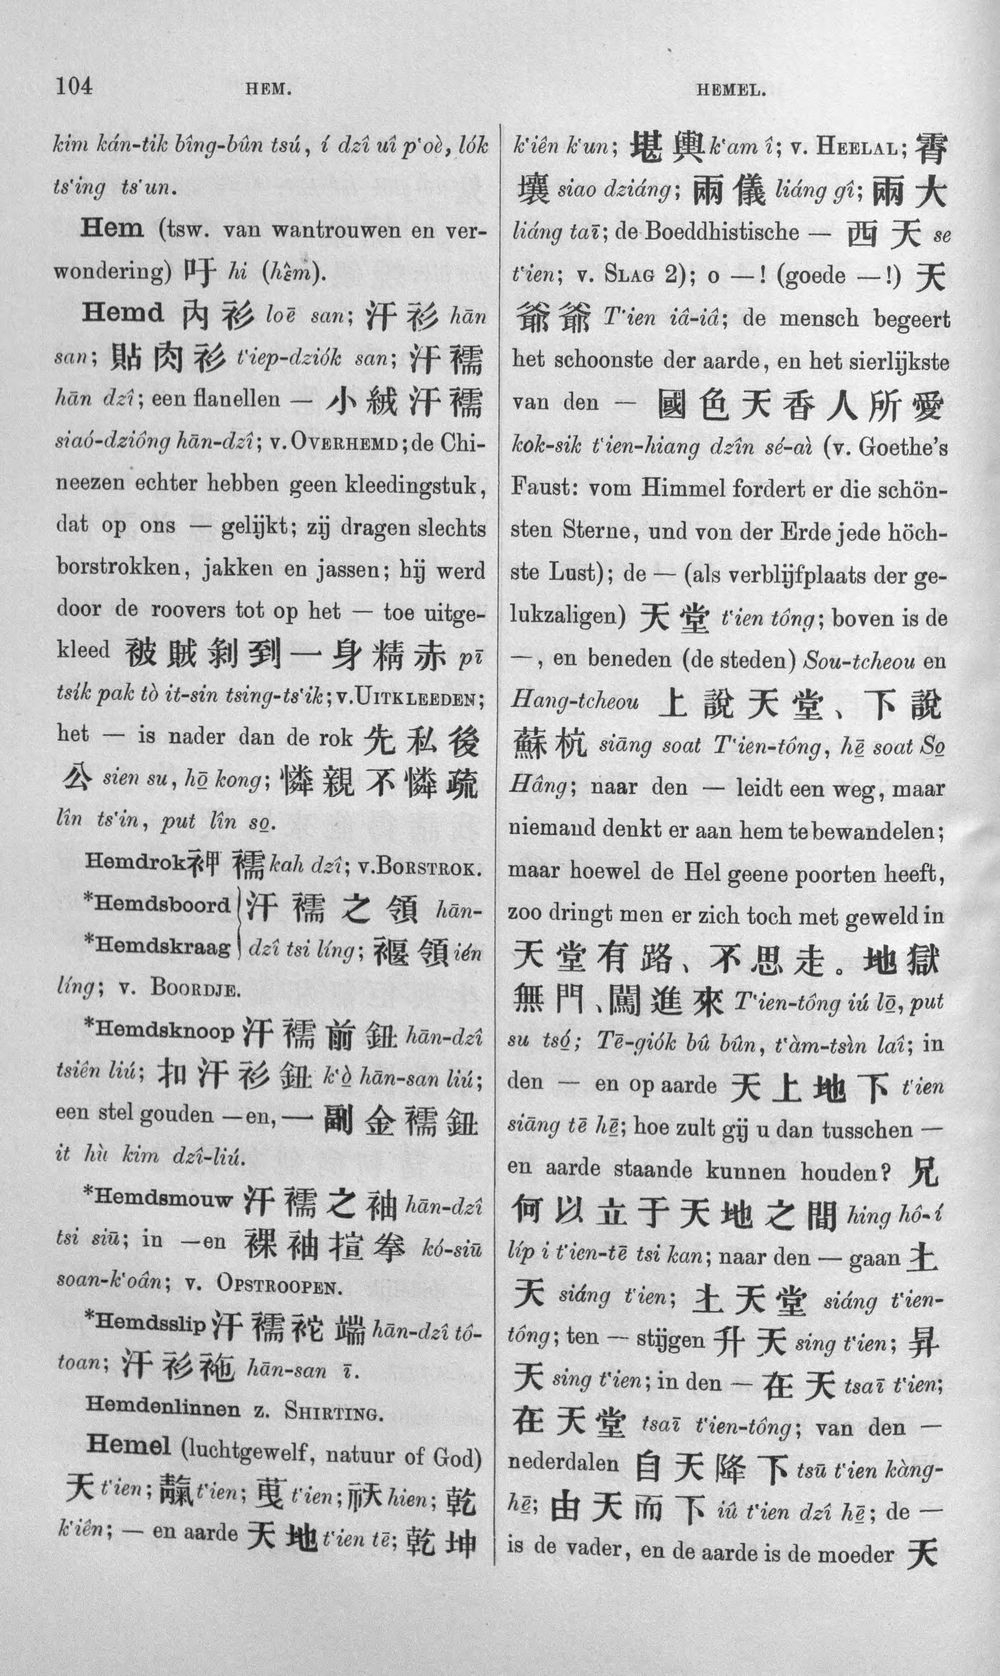 104 HEM. HEMEL.
kim kán-tik bîng-bûn tsú, í dzî uî p‘oè, lók
ts‘ing ts‘un.
Hem (tsw. van wantrouwen en ver-
wondering) 吁 hi (hêm).
Hemd 內衫 loē san; 汗衫 hān
san; 貼肉衫 t‘iep-dziók san; 汗襦
hān dzî; een flanellen — 小絨汗襦
siaó-dziông hān-dzî; v. OVERHEMD; de Chi-
neezen echter hebben geen kleedingstuk,
dat op ons — gelijkt; zij dragen slechts
borstrokken, jakken en jassen; hij werd
door de roovers tot op het — toe uitge-
kleed 被賊剝到一身精赤 pī
tsík pak tò it-sin tsing-ts‘ik; v. UITKLEEDEN;
het — is nader dan de rok 先私後
公 sien su, hō kong; 憐親不憐疏
lîn ts‘in, put lîn so.
Hemdrok 裑襦 kah dzî; v. BORSTROK.
*Hemdsboord 汗襦之領 hān-
*Hemdskraag dzî tsi líng; 褗領 ién
líng; v. BOORDJE.
*Hemdsknoop 汗襦前鈕 hān-dzî
tsiên liú; 扣汗衫鈕 k‘ò hān-san liú;
een stel gouden —en, 一副金襦鈕
it hù kim dzî-liú.
*Hemdsmouw 汗襦之袖 hān-dzî
tsi siū; in —en 裸袖揎拳 kó-siū
soan-k‘oân; v. OPSTROOPEN.
*Hemdsslip 汗襦袉端 hān-dzî tô-
toan; 汗衫袘 hān-san ī.
Hemdenlinnen z. SHIRTING.
Hemel (luchtgewelf, natuur of God)
天 t‘ien; 靝 t‘ien; t‘ien; 祆 hien; 乾
k‘iên; — en aarde 天地 t‘ien tē; 乾坤
k‘iên k‘un; 堪輿 k‘am î; v. HEELAL; 霄
壤 siao dziáng; 兩儀 liáng gî; 兩大
liáng taī; de Boeddhistische — 西天 se
t‘ien; v. SLAG 2); o —! (goede —!) 天
爺爺 T‘ien iâ-iâ; de mensch begeert
het schoonste der aarde, en het sierlijkste
van den — 國色天香人所愛
kok-sik t‘ien-hiang dzîn sé-aì (v. Goethe’s
Faust: vom Himmel fordert er die schön-
sten Sterne, und von der Erde jede höch-
ste Lust); de — (als verblijfplaats der ge-
lukzaligen) 天堂 t‘ien tông; boven is de
—, en beneden (de steden) Sou-tcheou en
Hang-tcheou 上說天堂、下說
蘇杭 siāng soat T‘ien-tông, hē soat So
Hâng; naar den — leidt een weg, maar
niemand denkt er aan hem te bewandelen;
maar hoewel de Hel geene poorten heeft,
zoo dringt men er zich toch met geweld in
天堂有路、不思走。地獄
無門、闖進來 T‘ien-tông iú lō, put
su tsó; Tē-giók bû bûn, t‘àm-tsìn laî; in
den — en op aarde 天上地下 t‘ien
siāng tē hē; hoe zult gij u dan tusschen —
en aarde staande kunnen houden? 兄
何以立于天地之間 hing hô-í
líp i t‘ien-tē tsi kan; naar den — gaan 上
天 siáng t‘ien; 上天堂 siáng t‘ien-
tông; ten — stijgen 升天 sing t‘ien; 昇
天 sing t‘ien; in den — 在天 tsaī t‘ien;
在天堂 tsaī t‘ien-tông; van den —
nederdalen 自天降下 tsū t‘ien kàng-
hē; 由天而下 iû t‘ien dzî hē; de —
is de vader, en de aarde is de moeder 天